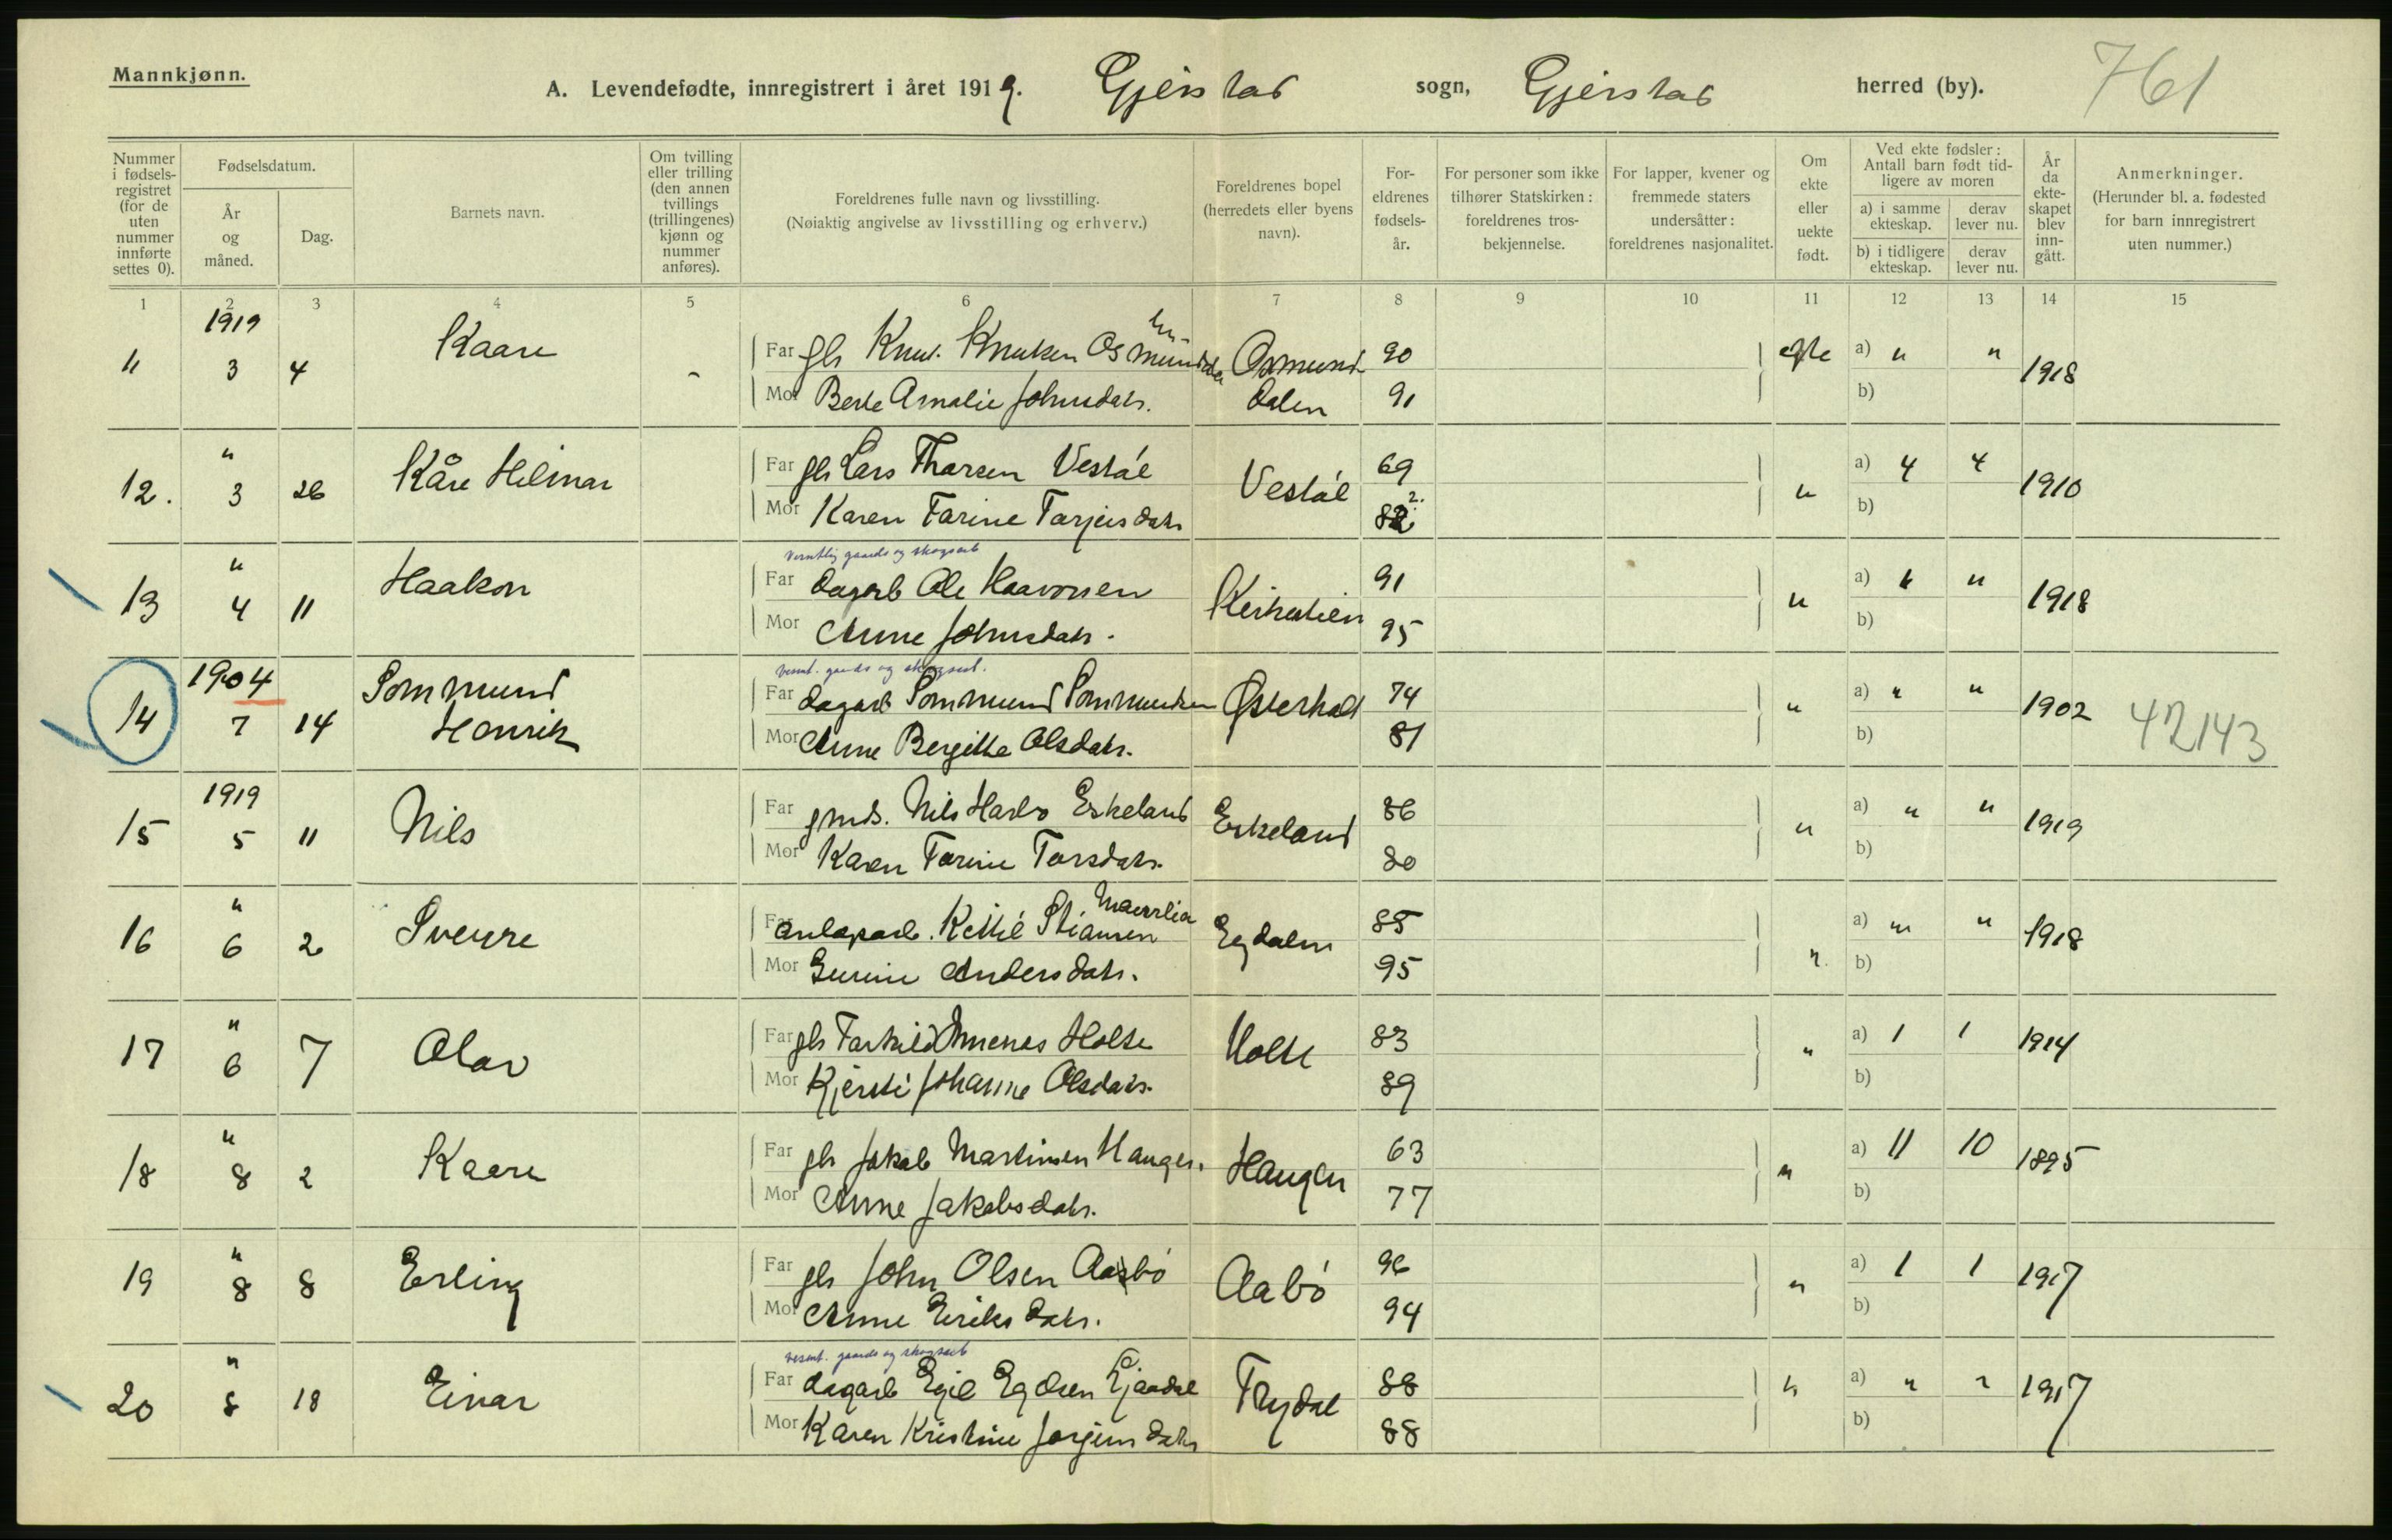 Mannkjønn.
A. Levendefødte, innregistrert i året 1919. Gjerstad sogn, Gjerstad herred (by). 761
Nummer i fødsels-registret (for de uten nummer innførte settes 0).
Fødselsdatum.
År og måned.
Dag.
Barnets navn.
Om tvilling eller trilling (den annen tvillings (trillingenes) kjønn og nummer anføres).
Foreldrenes fulle navn og livsstilling.
(Nøiaktig angivelse av livsstilling og erhverv.)
Foreldrenes bopel (herredets eller byens navn).
For-eldrenes fødsels-år.
For personer som ikke tilhører Statskirken: foreldrenes tros-bekjennelse.
For lapper, kvener og fremmede staters undersåtter: foreldrenes nasjonalitet.
Om ekte eller uekte født.
Ved ekte fødsler: Antall barn født tid-ligere av moren
a) i samme ekteskap. derav lever nu.
b) i tidligere ekteskap. derav lever nu.
År da ekte-skapet blev inn-gått.
Anmerkninger.
(Herunder bl. a. fødested for barn innregistrert uten nummer.)
1 2 3 4 5 6 7 8 9 10 11 12 13 14 15
1919
11 3 4 Kaare - Far gbr Knut Knutsen Osmundda Osmund 90 egte a) " " 1918
Mor Berte Amalie Johnsdatr. dalen 91 b)
"
12. 3 26 Kåre Hilmar Far gbr Lars Tharsen Vestøl Vestøl 69 " a) 4 4 1910
Mor Karen Tarine Tarjeisdatr 82 2. b)
" vesentlig gaards og skogsarb
13 4 11 Haakon Far dagarb Ole Haavorsen 91 " a) " " 1918
Mor Anne Johnsdatr. 95 b)
1904 vesent. gaards og skogsarb.
14 7 14 Sommund Henrik Far dagarb Sommund Sommundsen Østerholt 74 " a) " " 1902 42143
Mor Anne Bergitte Olsdatr. 81 b)
1919
15 5 11 Nils Far gmds. Nils Harbo Eskeland Eskeland 86 " a) " " 1919
Mor Karen Tarine Tarsdatr. 80 b)
"
16 6 2 Sverre Far anlagsarb. Kittil Stiansen Egdalen 85 " a) " " 1918
Mor Gurine Andersdatr. 95 b)
"
17 6 7 Olav Far gbr Tarkild Holte Holte 83 " a) 1 1 1914
Mor Kjersti Johanne Olsdatr. 89 b)
"
18 8 2 Kaare Far gbr Jakob Martinsen Haugen. Haugen 63 " a) 11 10 1895
Mor Anne Jakobsdatr. 77 b)
"
19 8 8 Erling Far gbr John Olsen Aabø Aabø 96 " a) 1 1 1917
Mor Anne Eriksdatr. 94 b)
" vesent. gaards og skogsarb
20 8 18 Einar Far dagarb Egil Egelsen Trydal 88 " a) " " 1917
Mor Karen Kristine Jørgensdatr 88 b)